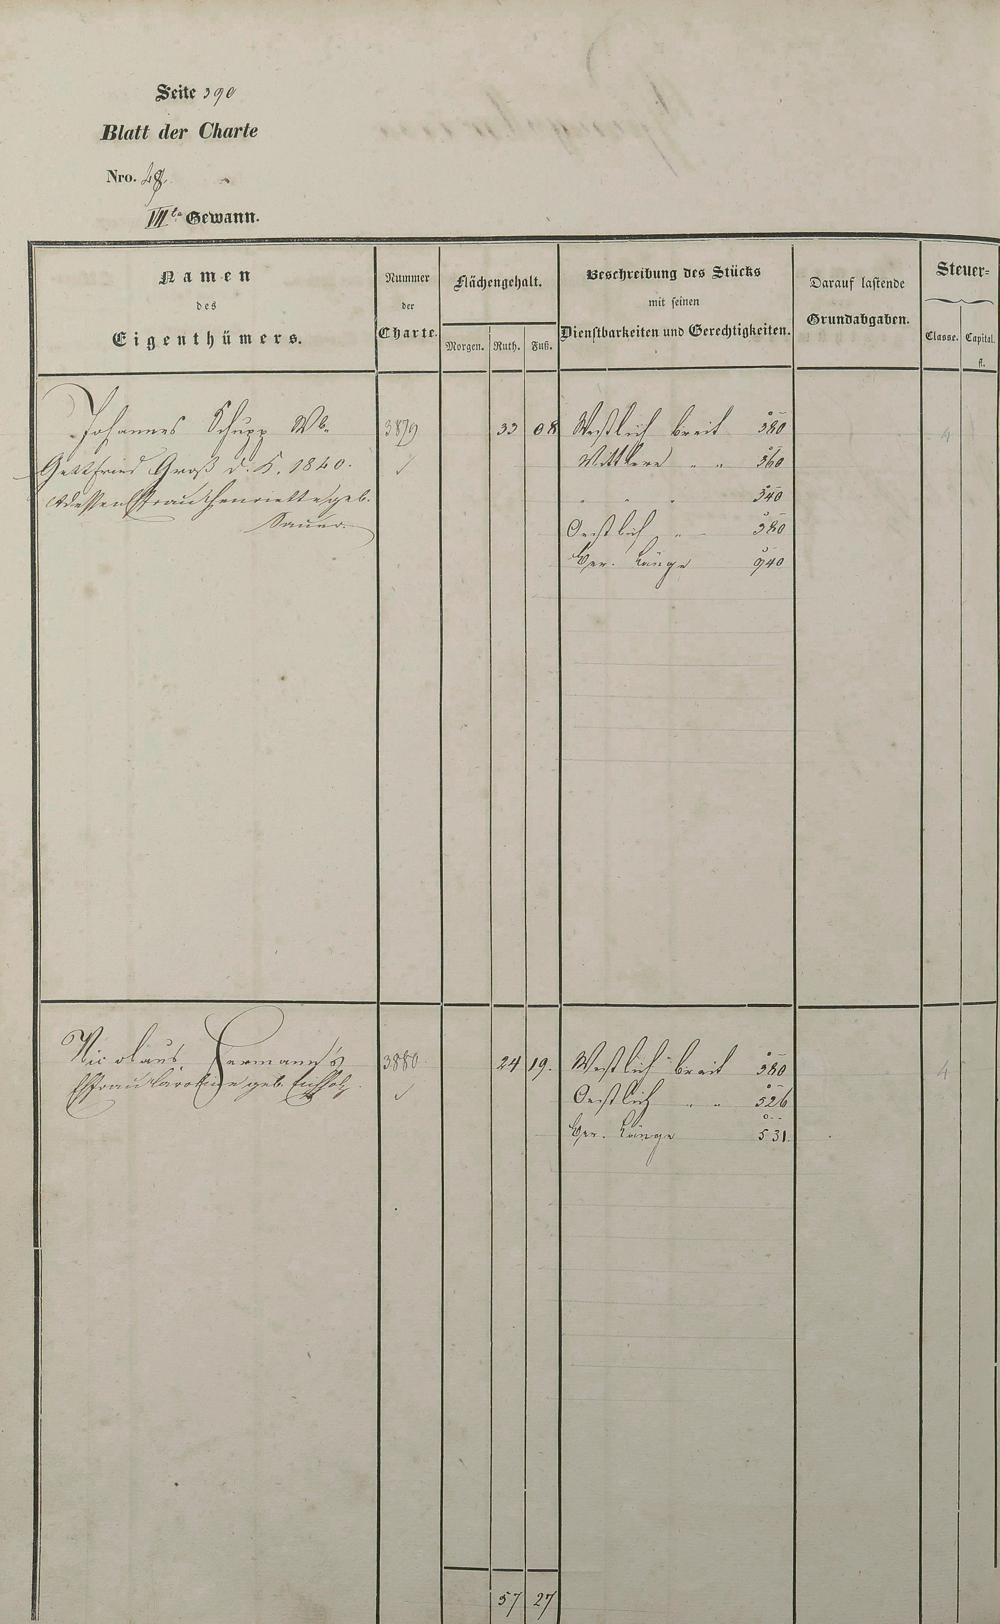 Seite 390
Blatt der Charte
Nro. 48.
VIIte Gewann.
Namen des Eigenthümers.
Nummer der Charte.
Flächengehalt.
Morgen. Ruth. Fuß.
Beschreibung des Stücks mit seinen Dienstbarkeiten und Gerechtigkeiten.
Darauf lastende Grundabgaben.
Steuer-
Classe. Capital. fl.
Johannes Schupp Wb. 3879 33 08 Westlich breit 380 4
Gottfried Groß d. K. 1840. Mittlere " " 360
Ehefrau Henriette geb. " " " 340
Sauer. Oestlich " 380
Ver. Länge 940
Nicolaus Hermann's 3880 24 19. Westlich breit 380 4
Ehefrau Caroline geb. Eichholz Oestlich " " 526
Ver. Länge 531
57 27